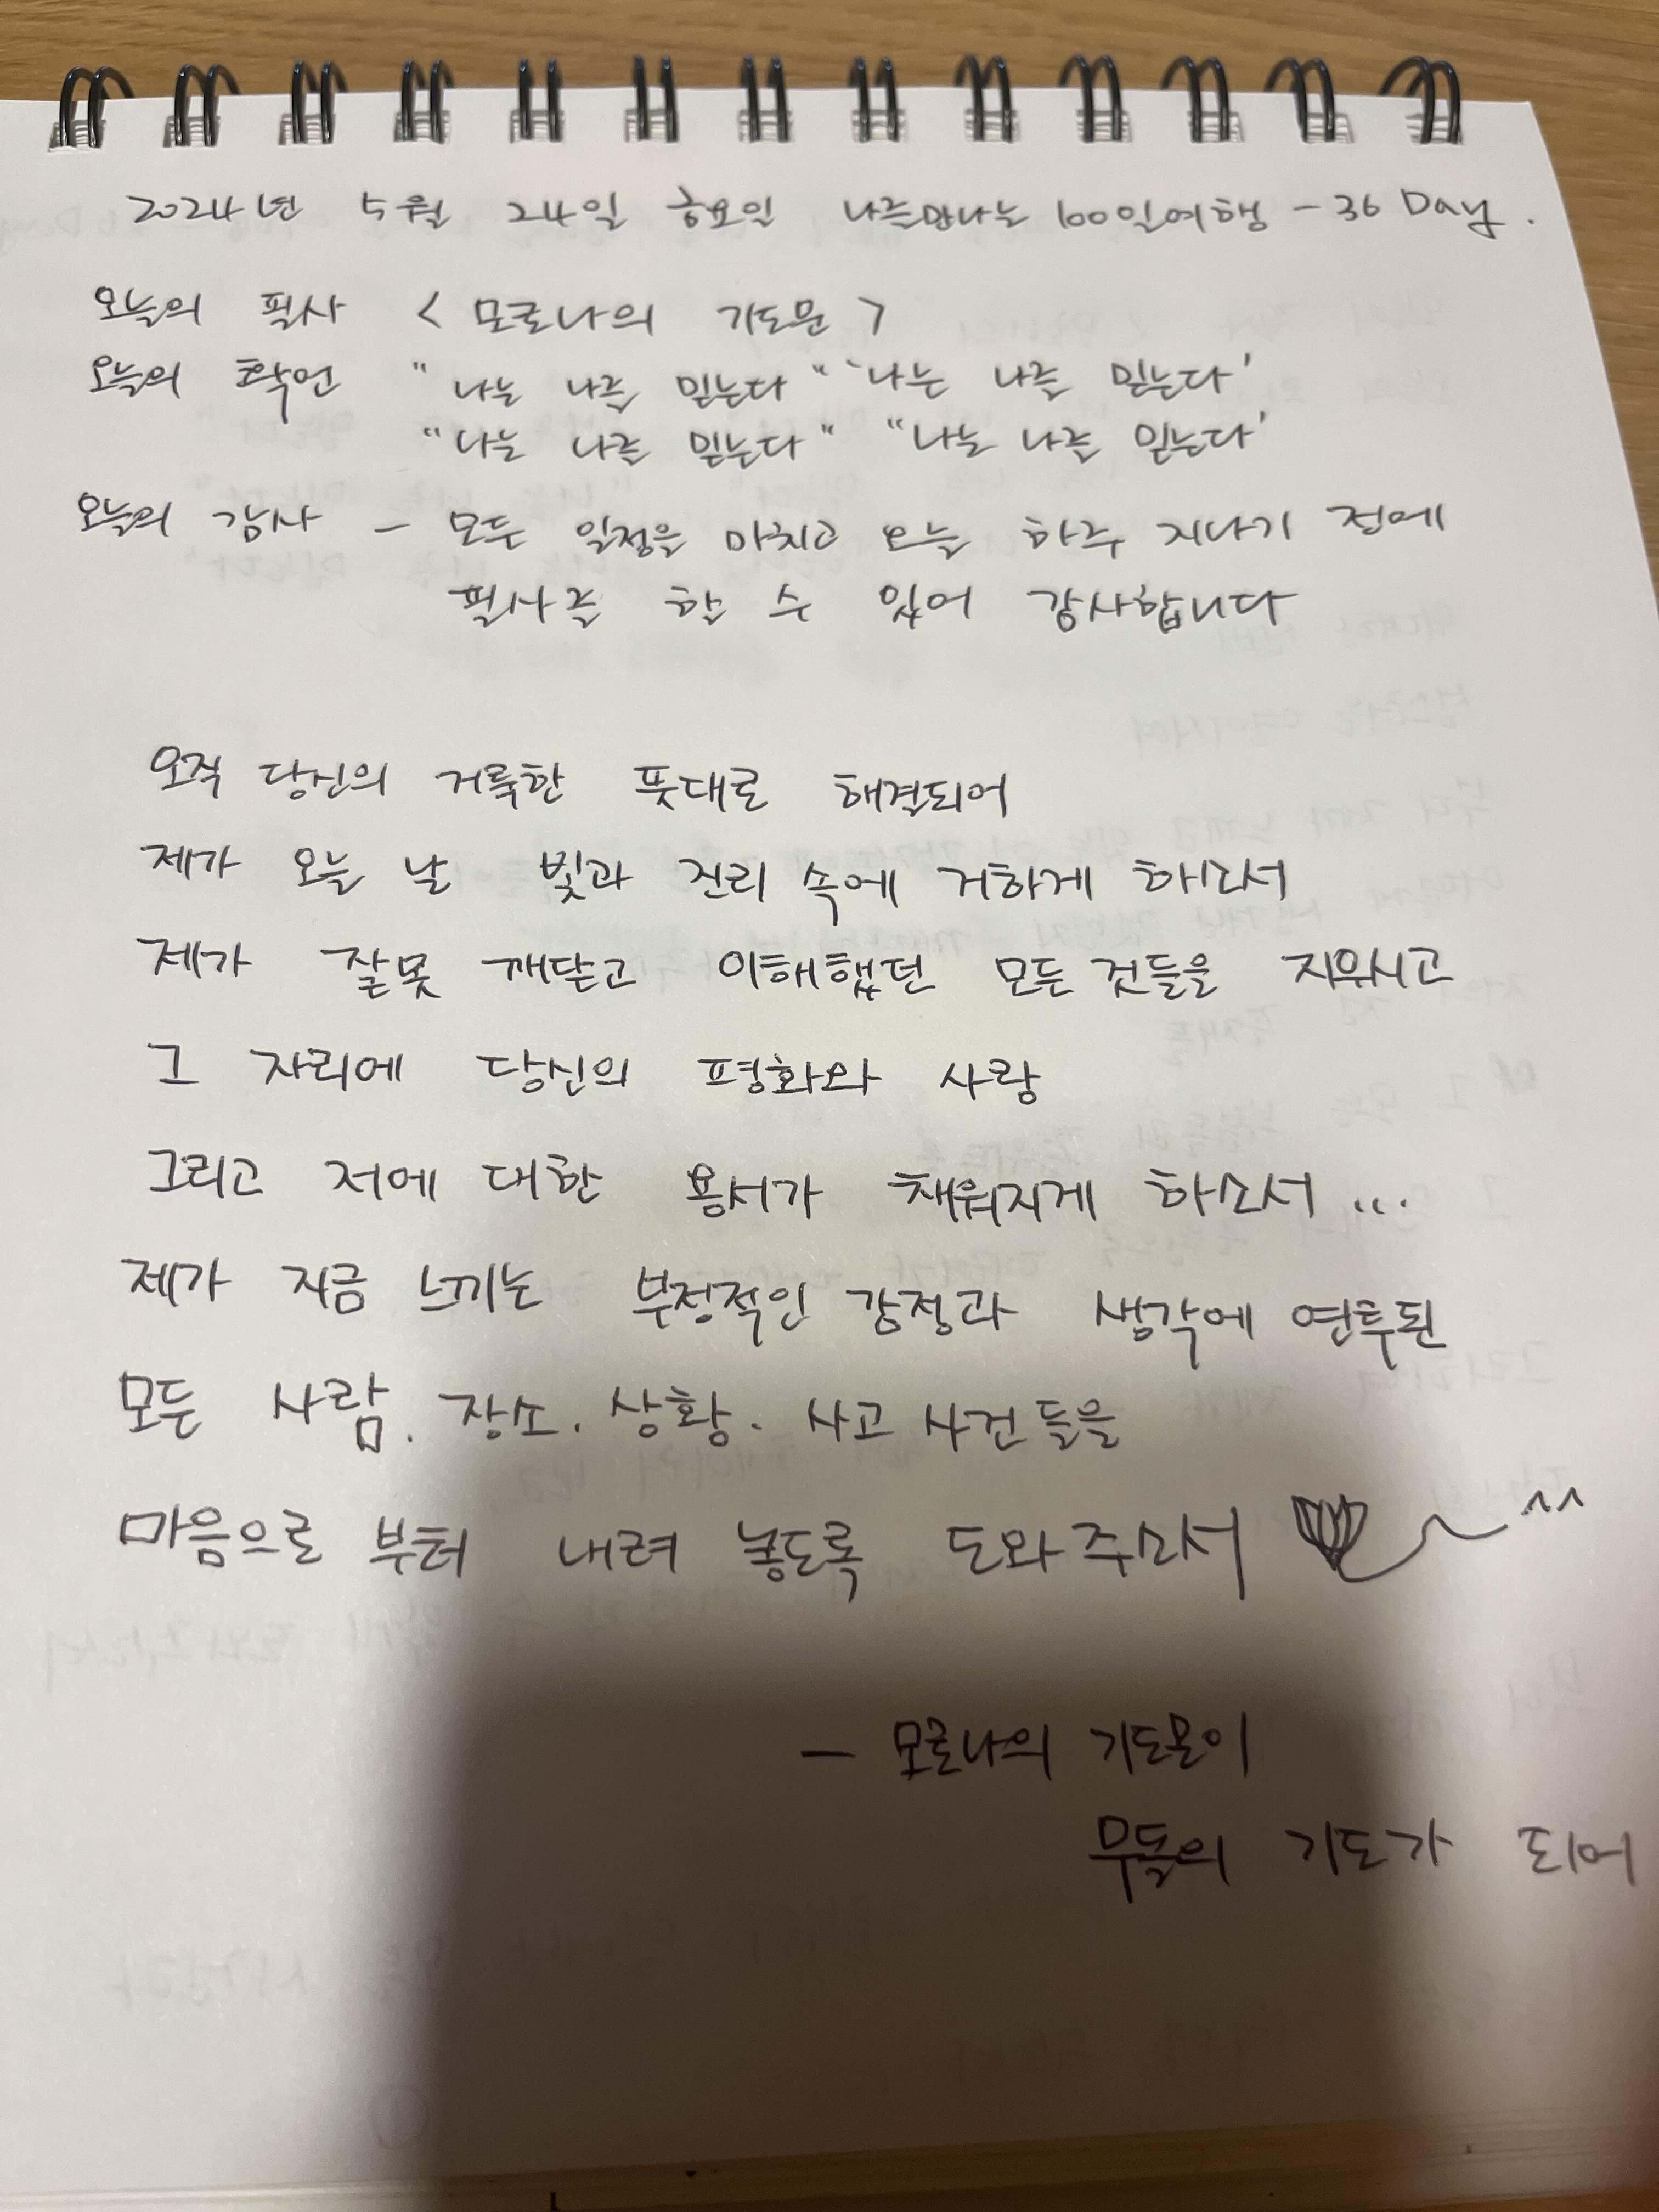 2024년 5월 24일 금요일 나를만나는 100일여행 - 36 Day.
오늘의 필사 < 모르나의 기도문 >
오늘의 확언 " 나는 나를 믿는다 " '나는 나를 믿는다'
"나는 나를 믿는다" "나는 나를 믿는다'
오늘의 감사 - 모든 일정을 마치고 오늘 하루 지나기 전에
필사를 할 수 있어 감사합니다
오직 당신의 거룩한 뜻대로 해결되어
제가 오늘 날 빛과 진리 속에 거하게 하소서
제가 잘못 깨닫고 이해했던 모든 것들을 지워시고
그 자리에 당신의 평화와 사랑
그리고 저에 대한 용서가 채워지게 하소서 ...
제가 지금 느끼는 부정적인 감정과 생각에 연투된
모든 사람. 장소. 상황. 사고 사건들을
마음으로 부터 내려 놓도록 도와주소서 ^^
- 모르나의 기도문이
의 기도가 되어